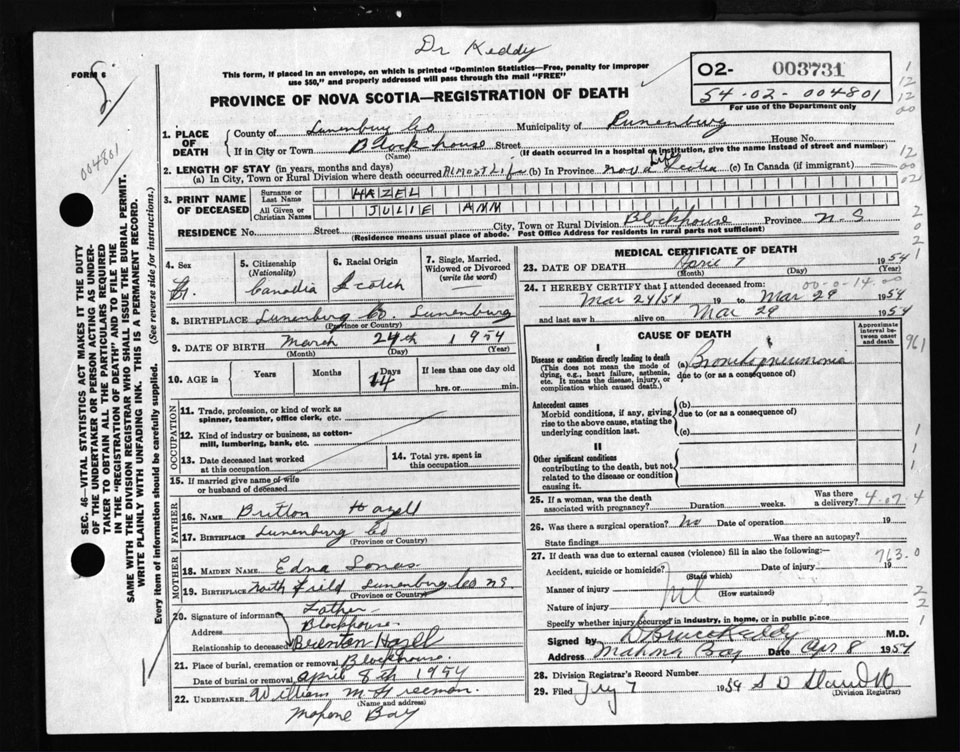 Dr Keddy
FORM 6
This form, if placed in an envelope, on which is printed "Dominion Statistics—Free, penalty for improper
use $50," and properly addressed will pass through the mail "FREE"
PROVINCE OF NOVA SCOTIA—REGISTRATION OF DEATH
02- 003731
54-02-004801
For use of the Department only
004801
SEC. 46—VITAL STATISTICS ACT MAKES IT THE DUTY
OF THE UNDERTAKER OR PERSON ACTING AS UNDER-
TAKER TO OBTAIN ALL THE PARTICULARS REQUIRED
IN THE "REGISTRATION OF DEATH" AND TO FILE THE
SAME WITH THE DIVISION REGISTRAR WHO SHALL ISSUE THE BURIAL PERMIT.
WRITE PLAINLY WITH UNFADING INK. THIS IS A PERMANENT RECORD.
Every item of information should be carefully supplied. (See reverse side for instructions.)
1. PLACE OF DEATH
County of Lunenburg Co Municipality of Lunenburg
If in City or Town Blockhouse Street House No.
(Name) (If death occurred in a hospital or institution, give the name instead of street and number)
2. LENGTH OF STAY (in years, months and days)
(a) In City, Town or Rural Division where death occurred Almost Life (b) In Province Nova Scotia Life (c) In Canada (if immigrant)
3. PRINT NAME OF DECEASED
Surname or Last Name HAZEL
All Given or Christian Names JULIE ANN
RESIDENCE No. Street City, Town or Rural Division Blockhouse Province N.S
(Residence means usual place of abode. Post Office Address for residents in rural parts not sufficient)
4. Sex
5. Citizenship (Nationality) Canadia
6. Racial Origin Scotch
7. Single, Married, Widowed or Divorced (write the word)
8. BIRTHPLACE Lunenburg Co. Lunenburg
(Province or Country)
9. DATE OF BIRTH March 24th 1954
(Month) (Day) (Year)
10. AGE in Years Months Days 14 If less than one day old hrs. or min.
OCCUPATION
11. Trade, profession, or kind of work as spinner, teamster, office clerk, etc.
12. Kind of industry or business, as cotton-mill, lumbering, bank, etc.
13. Date deceased last worked at this occupation
14. Total yrs. spent in this occupation
15. If married give name of wife or husband of deceased
FATHER
16. NAME Britton Hazell
17. BIRTHPLACE Lunenburg Co
(Province or Country)
MOTHER
18. MAIDEN NAME Edna
19. BIRTHPLACE North field Lunenburg Co NS
(Province or Country)
20. Signature of informant Father
Address Blockhouse
Relationship to deceased Brenton Hazell
21. Place of burial, cremation or removal Blockhouse.
Date of burial or removal April 8th 1954
22. UNDERTAKER William M Freeman.
(Name and address)
Mahone Bay
MEDICAL CERTIFICATE OF DEATH
23. DATE OF DEATH April 7 1954
(Month) (Day) (Year)
24. I HEREBY CERTIFY that I attended deceased from: 00-0-14.00
Mar 24/54 19 to Mar 29 1954
and last saw h alive on Mar 29 1954
CAUSE OF DEATH
Approximate interval between onset and death
I
Disease or condition directly leading to death
(This does not mean the mode of dying, e.g., heart failure, asthenia, etc. It means the disease, injury, or complication which caused death.)
(a) Bronchopneumonia
due to (or as a consequence of)
Antecedent causes
Morbid conditions, if any, giving rise to the above cause, stating the underlying condition last.
(b)
due to (or as a consequence of)
(c)
II
Other significant conditions
contributing to the death, but not related to the disease or condition causing it.
25. If a woman, was the death associated with pregnancy? Duration weeks. Was there a delivery? 4-07-4
26. Was there a surgical operation? No Date of operation 19
State findings Was there an autopsy?
27. If death was due to external causes (violence) fill in also the following: 763.0
Accident, suicide or homicide? Date of injury 19
(State which)
Manner of injury Nil
(How sustained)
Nature of injury
Specify whether injury occurred in industry, in home, or in public place
Signed by D Bruce Keddy M.D.
Address Mahone Bay Date Apr 8 1954
28. Division Registrar's Record Number
29. Filed July 7 1954
(Division Registrar)